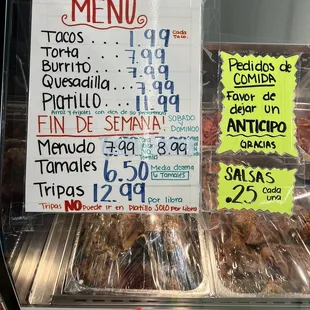 MENU
Tacos . . . . 1.99 Cada Taco.
Torta . . . . . . 7.99
Burrito . . . . 7.99
Quesadilla . . . 7.99
Platillo . . . . 11.99
Arroz y frijoles con
FIN DE SEMANA SOBADO DOMINGO
Menudo 7.99 8.99
Tamales 6.50 Media docena 6 TAMALES
Tripas 12.99 por libra
Tripas NO Puede ir en Platillo SOLO por libra
Pedidos de
COMIDA
Favor de
dejar un
ANTICIPO
GRACIAS
SALSAS
.25 Cada una